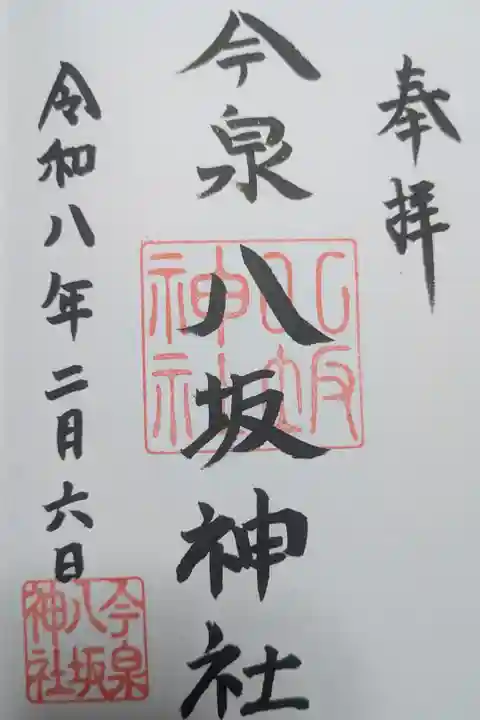 奉拝
今泉八坂神社
令和八年二月六日
今泉
八坂
神社